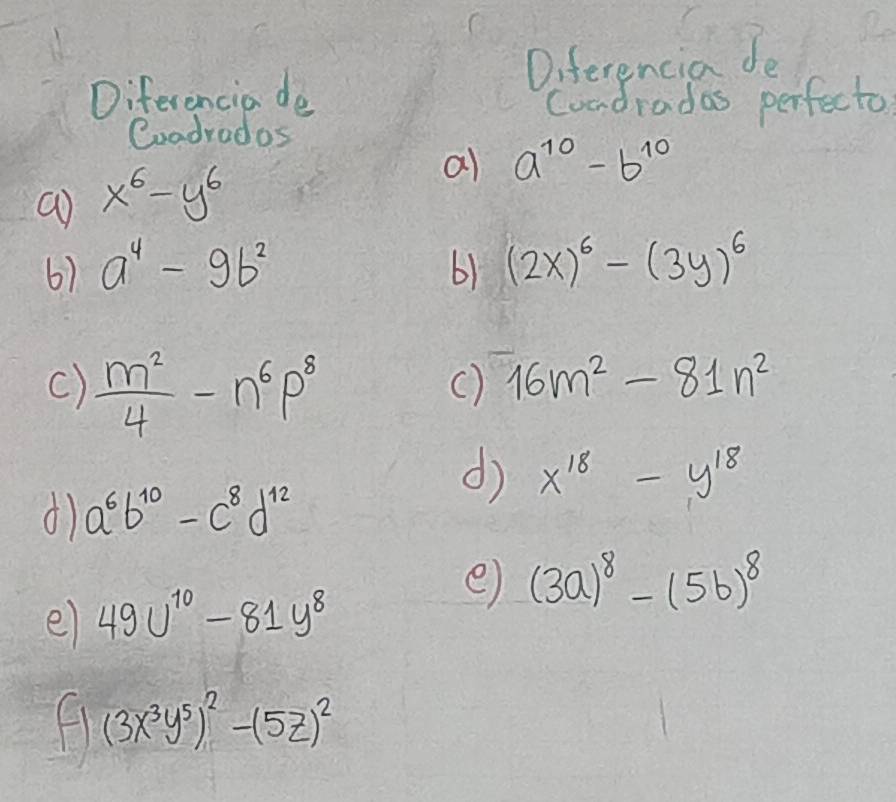 Diferencia de
Cuadrados
a) x⁶ - y⁶
b) a⁴ - 9b²
c) m²/4 - n⁶p⁸
d) a⁶b¹⁰ - c⁸d¹²
e) 49U¹⁰ - 81y⁸
f) (3x³y⁵)² - (5z)²
Diferencia de
Cuadrados perfecto
a) a¹⁰ - b¹⁰
b) (2x)⁶ - (3y)⁶
c) 16m² - 81n²
d) x¹⁸ - y¹⁸
e) (3a)⁸ - (5b)⁸